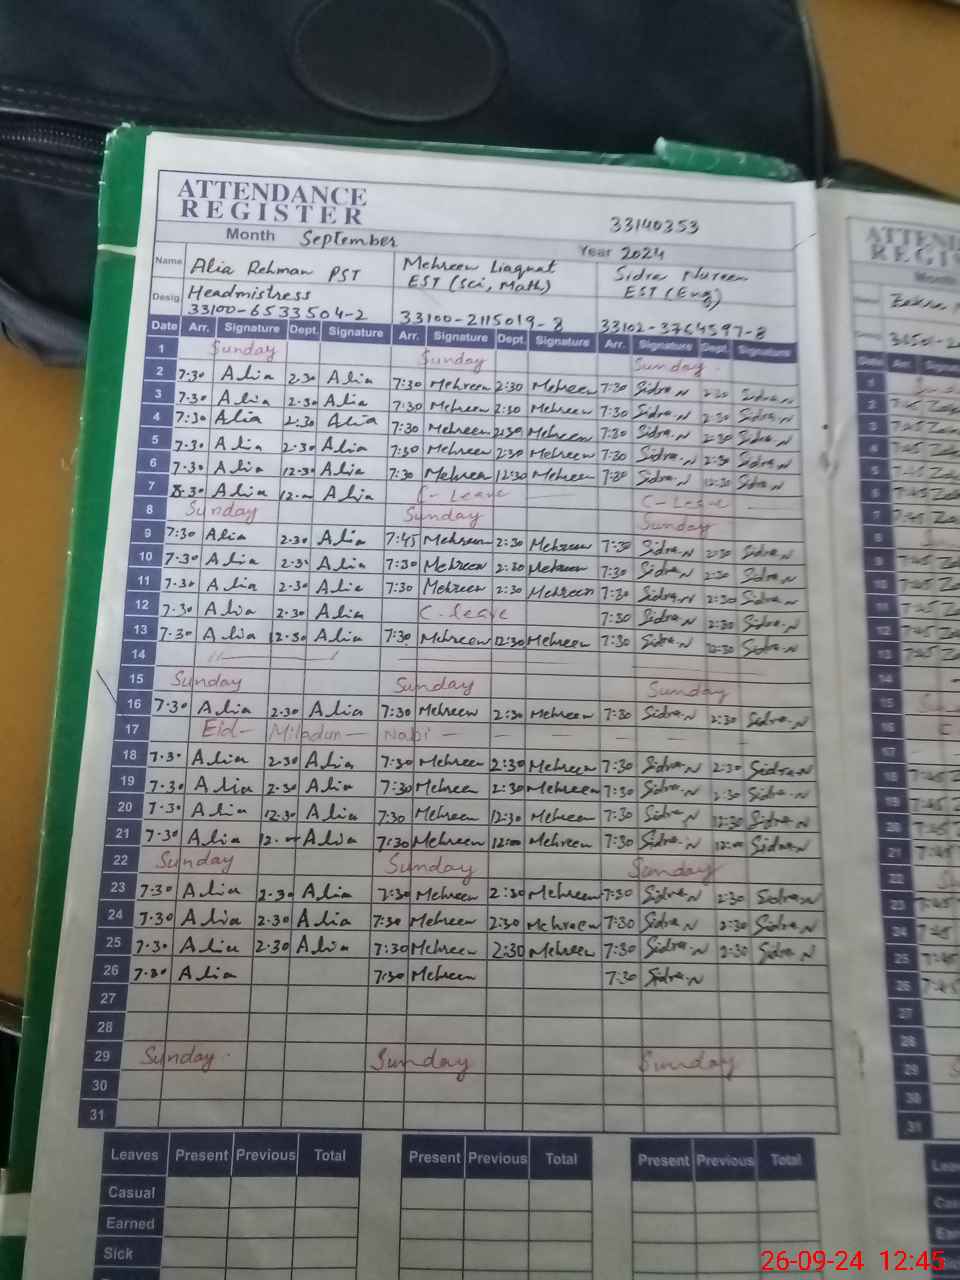 ATTENDANCE
REGISTER
33140353
Month September Year 2024
Name Alia Rehman PST Mehreen Liaquat Sidra Nureen
EST (Sci, Math) EST (Eng)
Desig. Headmistress
33100-6533504-2 33100-2115019-8 33102-3764597-8
Date Arr. Signature Dept. Signature Arr. Signature Dept. Signature Arr. Signature Dept. Signature
1 Sunday Sunday Sunday
2 7.30 Alia 2.30 Alia 7:30 Mehreen 2:30 Mehreen 7:30 Sidra.N 2:30 Sidra.N
3 7.30 Alia 2.30 Alia 7:30 Mehreen 2:30 Mehreen 7:30 Sidra.N 2:30 Sidra.N
4 7.30 Alia 2.30 Alia 7:30 Mehreen 2:30 Mehreen 7:30 Sidra.N 2:30 Sidra.N
5 7.30 Alia 2.30 Alia 7:30 Mehreen 2:30 Mehreen 7:30 Sidra.N 2:30 Sidra.N
6 7.30 Alia 12.30 Alia 7:30 Mehreen 12:30 Mehreen 7:30 Sidra.N 12:30 Sidra.N
7 8.30 Alia Alia C-Leave C-Leave
8 Sunday Sunday Sunday
9 7:30 Alia 2.30 Alia 7:45 Mehreen 2:30 Mehreen 7:30 Sidra.N 2:30 Sidra.N
10 7.30 Alia 2.30 Alia 7:30 Mehreen 2:30 Mehreen 7:30 Sidra.N 2:30 Sidra.N
11 7.30 Alia 2.30 Alia 7:30 Mehreen 2:30 Mehreen 7:30 Sidra.N 2:30 Sidra.N
12 7.30 Alia 2.30 Alia C-leave 7:30 Sidra.N 2:30 Sidra.N
13 7.30 Alia 12.30 Alia 7:30 Mehreen 12:30 Mehreen 7:30 Sidra.N 12:30 Sidra.N
14
15 Sunday Sunday Sunday
16 7.30 Alia 2.30 Alia 7:30 Mehreen 2:30 Mehreen 7:30 Sidra.N 2:30 Sidra.N
17 Eid- Miladun- Nabi
18 7.30 Alia 2.30 Alia 7:30 Mehreen 2:30 Mehreen 7:30 Sidra.N 2:30 Sidra.N
19 7.30 Alia 2.30 Alia 7:30 Mehreen 2:30 Mehreen 7:30 Sidra.N 2:30 Sidra.N
20 7.30 Alia 12.30 Alia 7:30 Mehreen 12:30 Mehreen 7:30 Sidra.N 12:30 Sidra.N
21 7.30 Alia Alia 7:30 Mehreen 12:00 Mehreen 7:30 Sidra.N 12:00 Sidra.N
22 Sunday Sunday Sunday
23 7.30 Alia 2.30 Alia 7:30 Mehreen 2:30 Mehreen 7:30 Sidra.N 2:30 Sidra.N
24 7.30 Alia 2.30 Alia 7:30 Mehreen 2:30 Mehreen 7:30 Sidra.N 2:30 Sidra.N
25 7.30 Alia 2.30 Alia 7:30 Mehreen 2:30 Mehreen 7:30 Sidra.N 2:30 Sidra.N
26 7.30 Alia 7:30 Mehreen 7:30 Sidra.N
27
28
29 Sunday Sunday Sunday
30
31
Leaves Present Previous Total Present Previous Total Present Previous Total
Casual
Earned
Sick
26-09-24 12:45